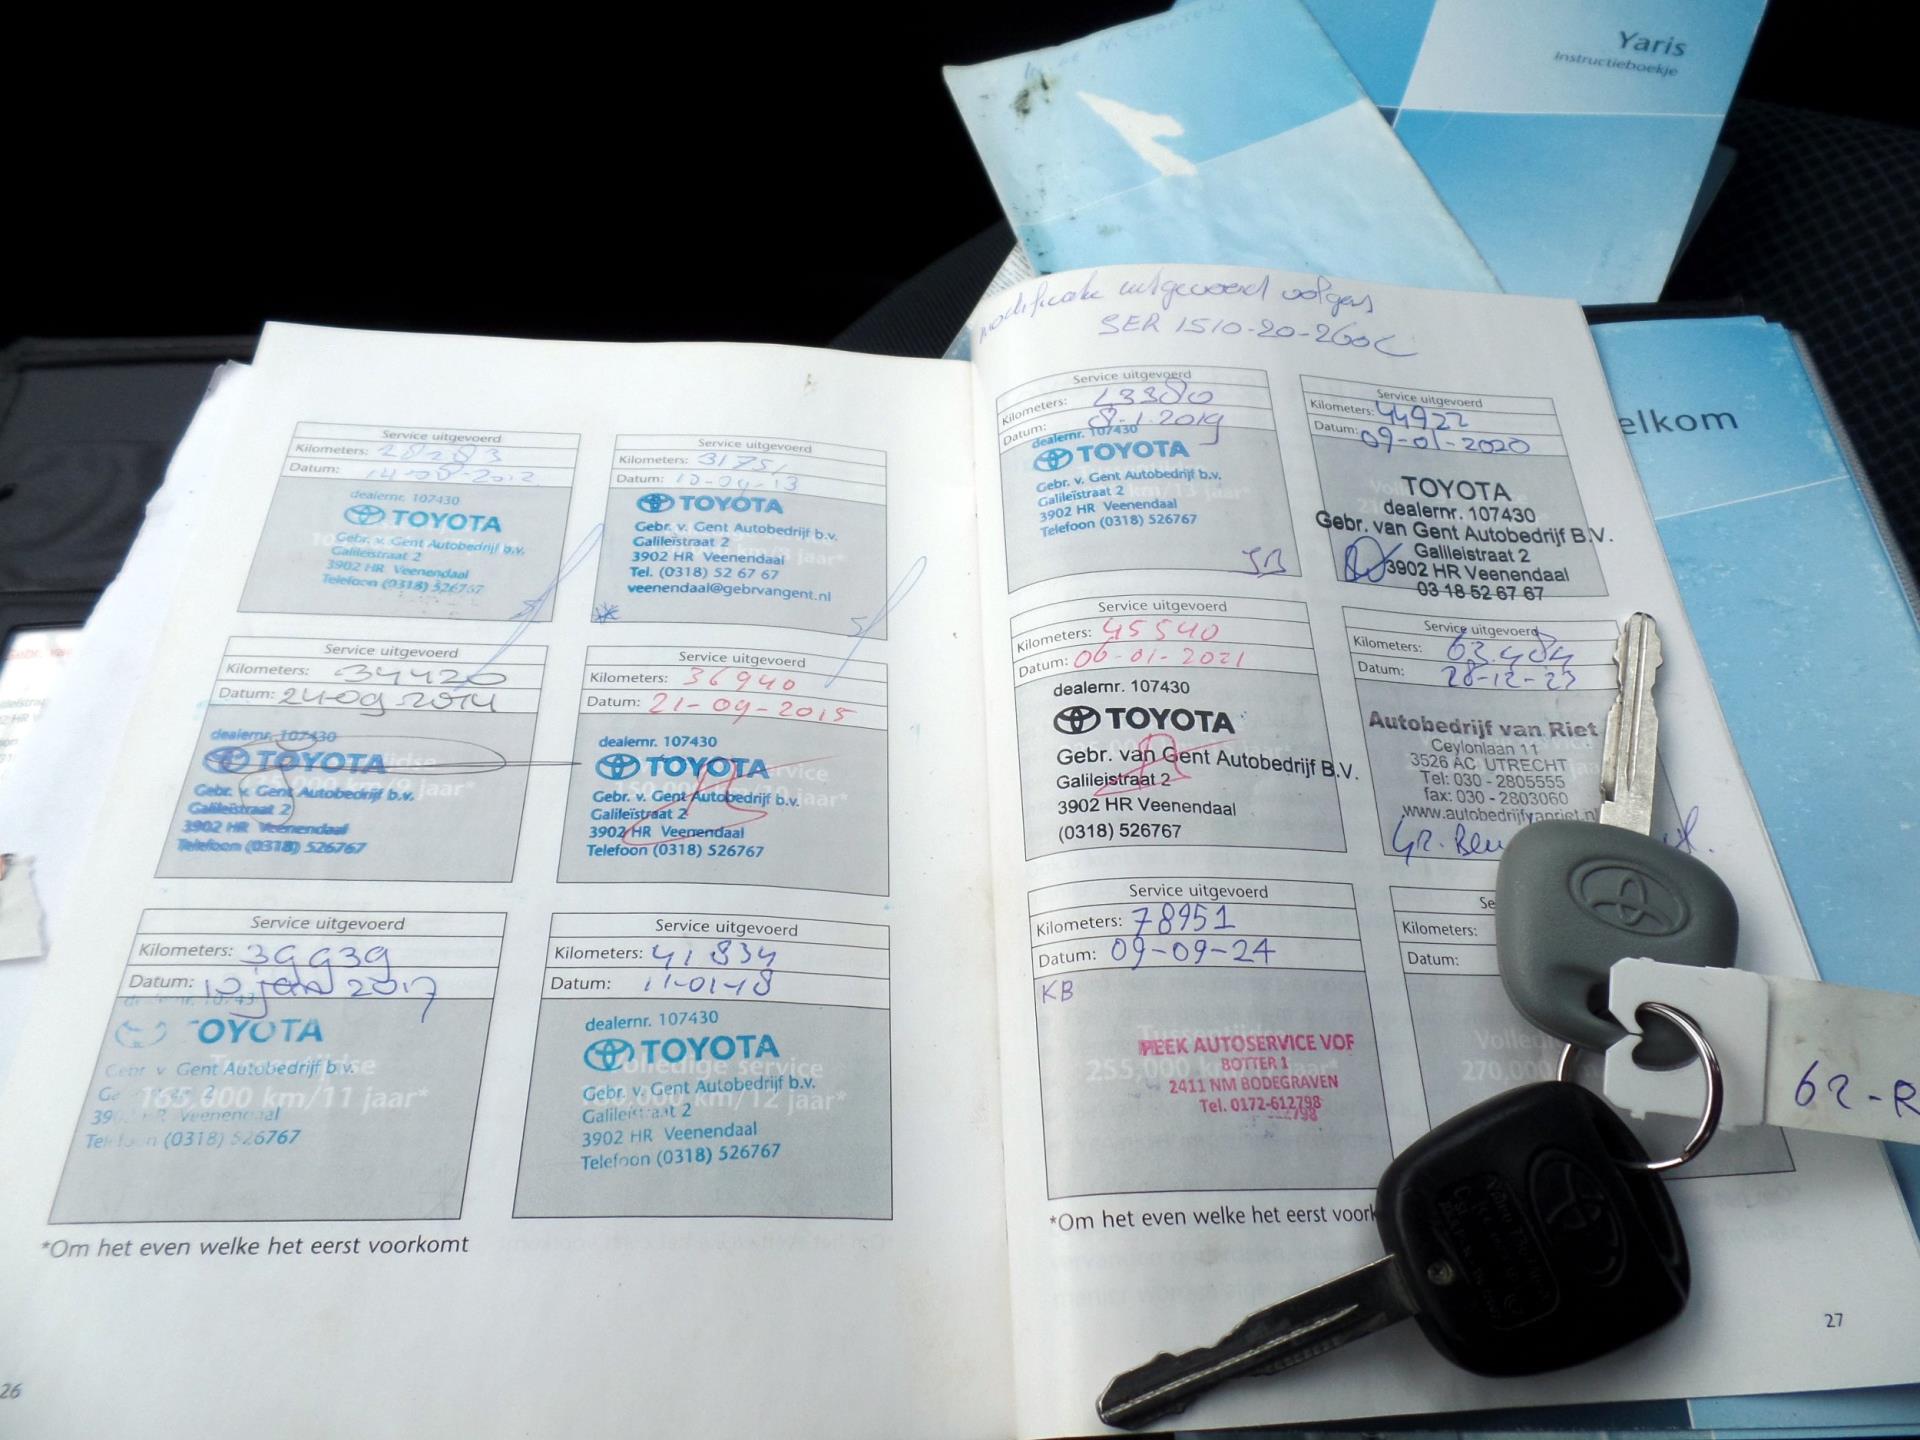 Yaris
Instructieboekje
elkom
modificatie uitgevoerd volgens
SER 1510-20-260C
Service uitgevoerd
Kilometers: 28283
Datum: 14-08-2012
dealernr. 107430
TOYOTA
Gebr. v. Gent Autobedrijf b.v.
Galileïstraat 2
3902 HR Veenendaal
Telefoon (0318) 526767
Service uitgevoerd
Kilometers: 31751
Datum: 10-04-13
TOYOTA
Gebr. v. Gent Autobedrijf b.v.
Galileïstraat 2
3902 HR Veenendaal
Tel. (0318) 52 67 67
veenendaal@gebrvangent.nl
Service uitgevoerd
Kilometers: 34420
Datum: 24-09-2014
dealernr. 107430
TOYOTA
Gebr. v. Gent Autobedrijf b.v.
Galileïstraat 2
3902 HR Veenendaal
Telefoon (0318) 526767
Service uitgevoerd
Kilometers: 36940
Datum: 21-09-2015
dealernr. 107430
TOYOTA
Gebr. v. Gent Autobedrijf b.v.
Galileïstraat 2
3902 HR Veenendaal
Telefoon (0318) 526767
Service uitgevoerd
Kilometers: 39939
Datum: 10 jan 2017
TOYOTA
Gebr v Gent Autobedrijf b.v.
Tussentijdse
165.000 km/11 jaar*
Veenendaal
Telefoon (0318) 526767
Service uitgevoerd
Kilometers: 41834
Datum: 11-01-18
dealernr. 107430
TOYOTA
Volledige service
Gebr. v. Gent Autobedrijf b.v.
km/12 jaar*
Galileïstraat 2
3902 HR Veenendaal
Telefoon (0318) 526767
*Om het even welke het eerst voorkomt
26
Service uitgevoerd
Kilometers: 43380
Datum: 8-1-2019
dealernr. 107430
TOYOTA
Gebr. v. Gent Autobedrijf b.v.
Galileïstraat 2
3902 HR Veenendaal
Telefoon (0318) 526767
JB
Service uitgevoerd
Kilometers: 44922
Datum: 09-01-2020
TOYOTA
dealernr. 107430
Gebr. van Gent Autobedrijf B.V.
Galileistraat 2
3902 HR Veenendaal
03 18 52 67 67
Service uitgevoerd
Kilometers: 45540
Datum: 06-01-2021
dealernr. 107430
TOYOTA
Gebr. van Gent Autobedrijf B.V.
Galileistraat 2
3902 HR Veenendaal
(0318) 526767
Service uitgevoerd
Kilometers: 63.484
Datum: 28-12-23
Autobedrijf van Riet
Ceylonlaan 11
3526 AC UTRECHT
Tel: 030 - 2805555
fax: 030 - 2803060
www.autobedrijfvanriet.nl
Service uitgevoerd
Kilometers: 78951
Datum: 09-09-24
KB
Tussentijdse
255.000 km/17 jaar*
PEEK AUTOSERVICE VOF
BOTTER 1
2411 NM BODEGRAVEN
Tel. 0172-612798
Se
Kilometers:
Datum:
Volledi
270.000
62-R
*Om het even welke het eerst voork
27